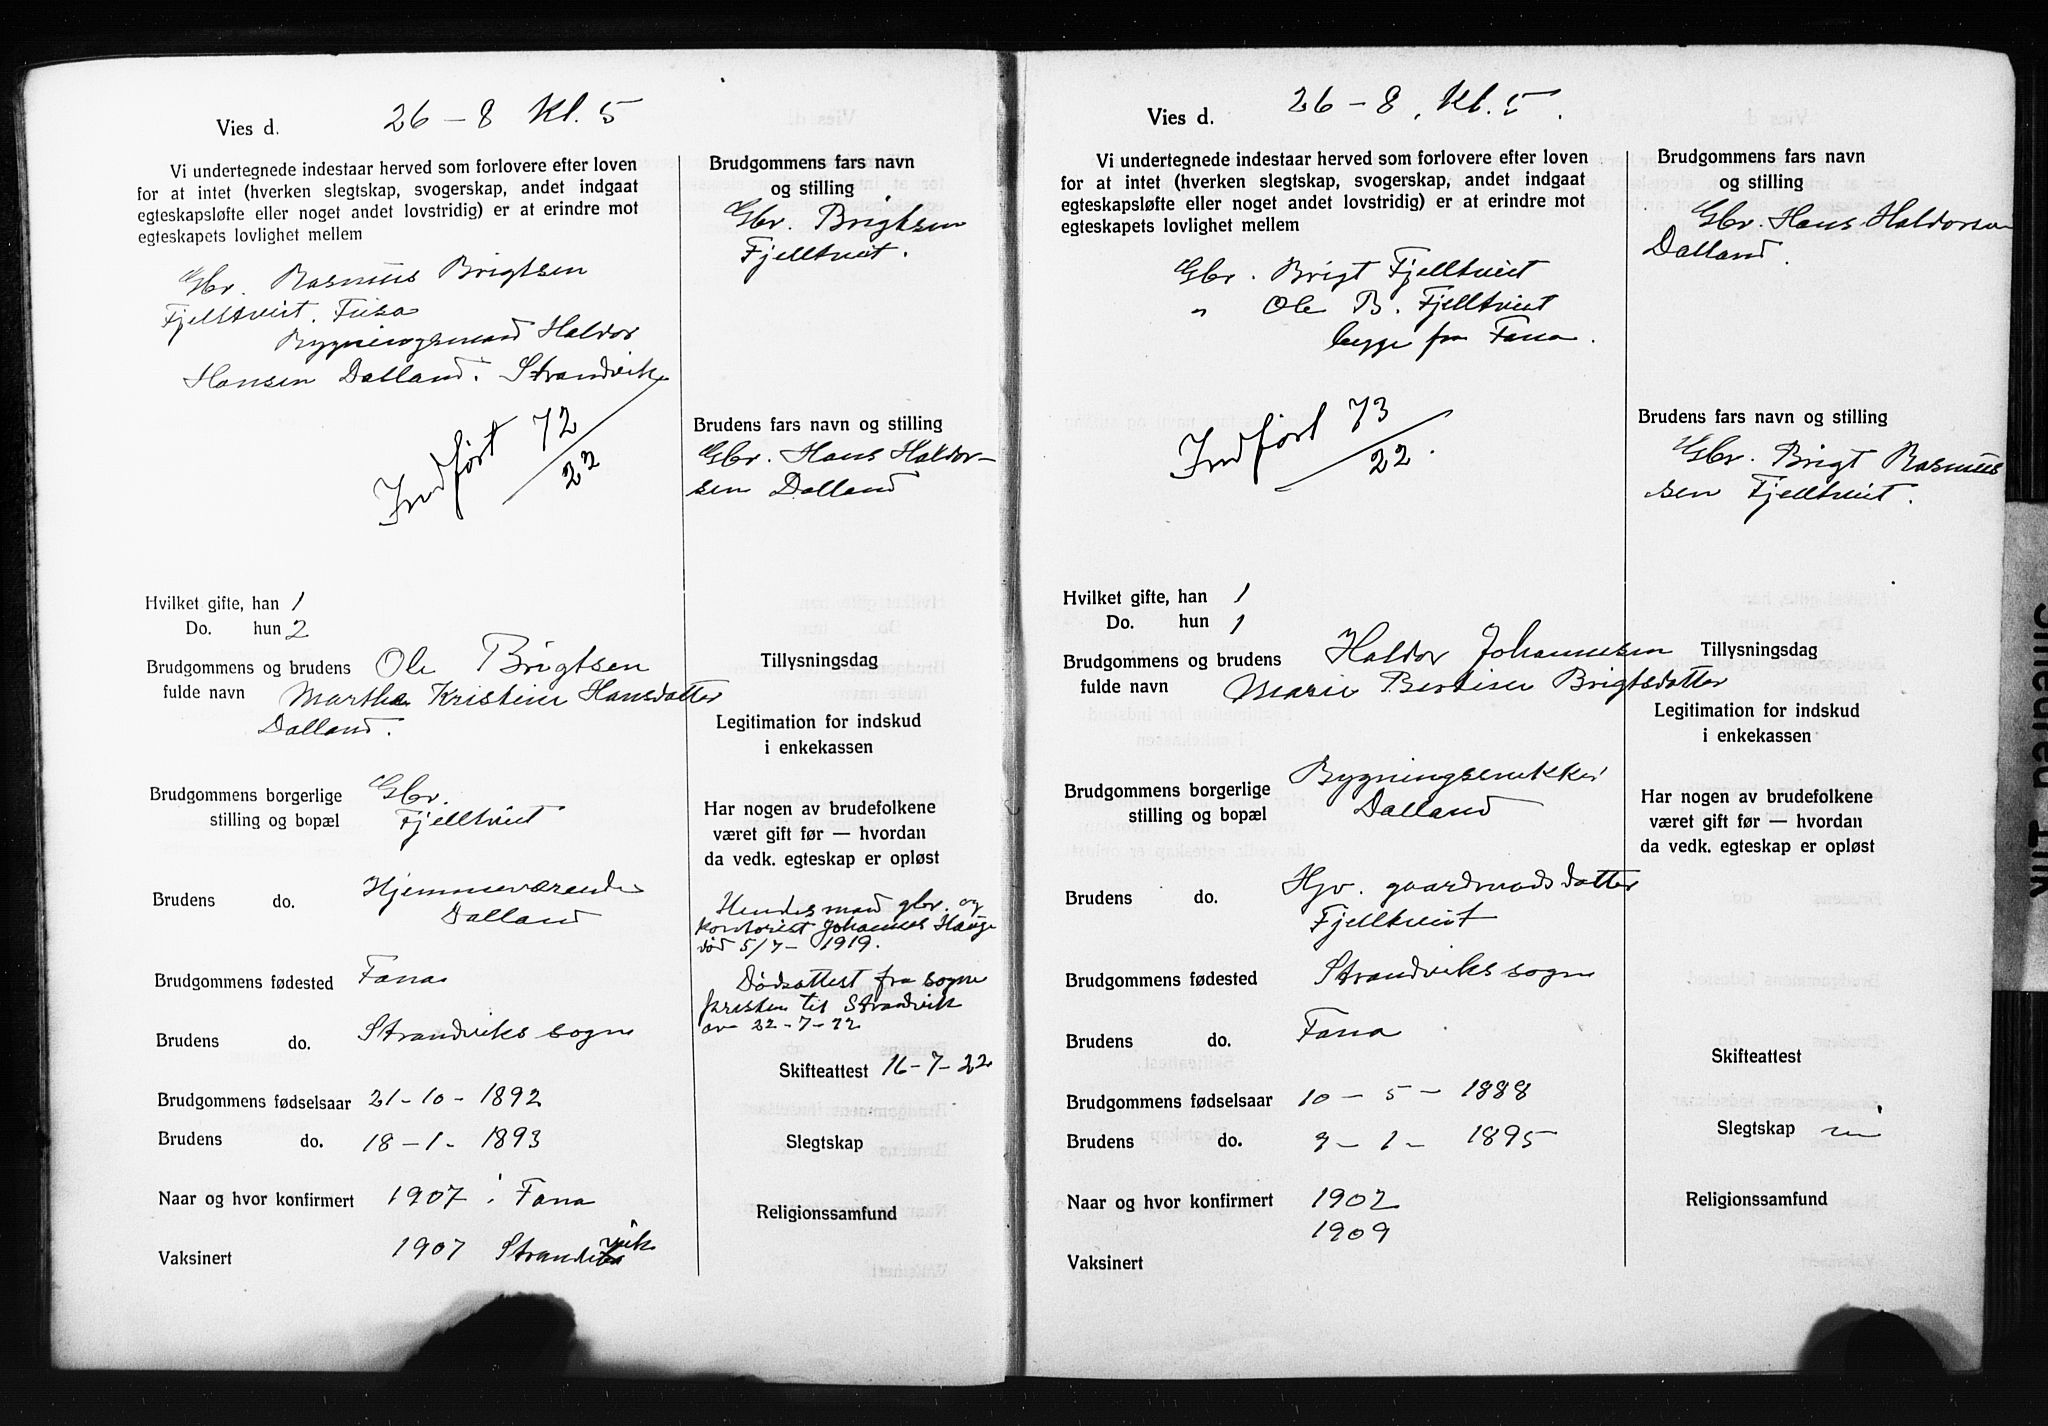 Vies d. 26 – 8 Kl. 5
Vi undertegnede indestaar herved som forlovere efter loven
for at intet (hverken slegtskap, svogerskap, andet indgaat
egteskapsløfte eller noget andet lovstridig) er at erindre mot
egteskapets lovlighet mellem
Gbr. Rasmus Brigtsen
Fjelltveit. Fusa
Bygningsmand Haldor
Hansen Dalland. Strandvik
Indført 72/22
Hvilket gifte, han 1
Do. hun 2
Brudgommens og brudens Ole Brigtsen
fulde navn Martha Kristine Hansdatter
Dalland.
Brudgommens borgerlige Gbr.
stilling og bopæl Fjelltveit
Brudens do. Hjemmeværende
Dalland
Brudgommens fødested Fana
Brudens do. Strandviks sogn
Brudgommens fødselsaar 21 – 10 – 1892
Brudens do. 18 – 1 – 1893
Naar og hvor konfirmert 1907 i Fana
Vaksinert 1907 Strandvik
Brudgommens fars navn
og stilling
Gbr. Brigtsen
Fjelltveit.
Brudens fars navn og stilling
Gbr. Hans Haldor-
sen Dalland
Tillysningsdag
Legitimation for indskud
i enkekassen
Har nogen av brudefolkene
været gift før — hvordan
da vedk. egteskap er opløst
Hendes mand gbr. og
kontorist Johannes Hauge
død 5/7 – 1919.
Dødsattest fra sogne
presten til Strandvik
av 22 – 7 – 22
Skifteattest 16 – 7 – 22
Slegtskap
Religionssamfund
Vies d. 26 – 8. Kl. 5.
Vi undertegnede indestaar herved som forlovere efter loven
for at intet (hverken slegtskap, svogerskap, andet indgaat
egteskapsløfte eller noget andet lovstridig) er at erindre mot
egteskapets lovlighet mellem
Gbr. Brigt Fjelltveit
" Ole B. Fjelltveit
begge fra Fana.
Indført 73/22.
Hvilket gifte, han 1
Do. hun 1
Brudgommens og brudens Haldor Johannesen
fulde navn Marie Bertine Brigtsdatter
Brudgommens borgerlige Bygningsnekker
stilling og bopæl Dalland
Brudens do. Hjv. gaardmandsdatter
Fjelltveit
Brudgommens fødested Strandviks sogn
Brudens do. Fana
Brudgommens fødselsaar 10 – 5 – 1888
Brudens do. 9 – 1 – 1895
Naar og hvor konfirmert 1902
1909
Vaksinert
Brudgommens fars navn
og stilling
Gbr. Hans Haldorsen
Dalland.
Brudens fars navn og stilling
Gbr. Brigt Rasmus
sen Fjelltveit.
Tillysningsdag
Legitimation for indskud
i enkekassen
Har nogen av brudefolkene
været gift før — hvordan
da vedk. egteskap er opløst
Skifteattest
Slegtskap
Religionssamfund